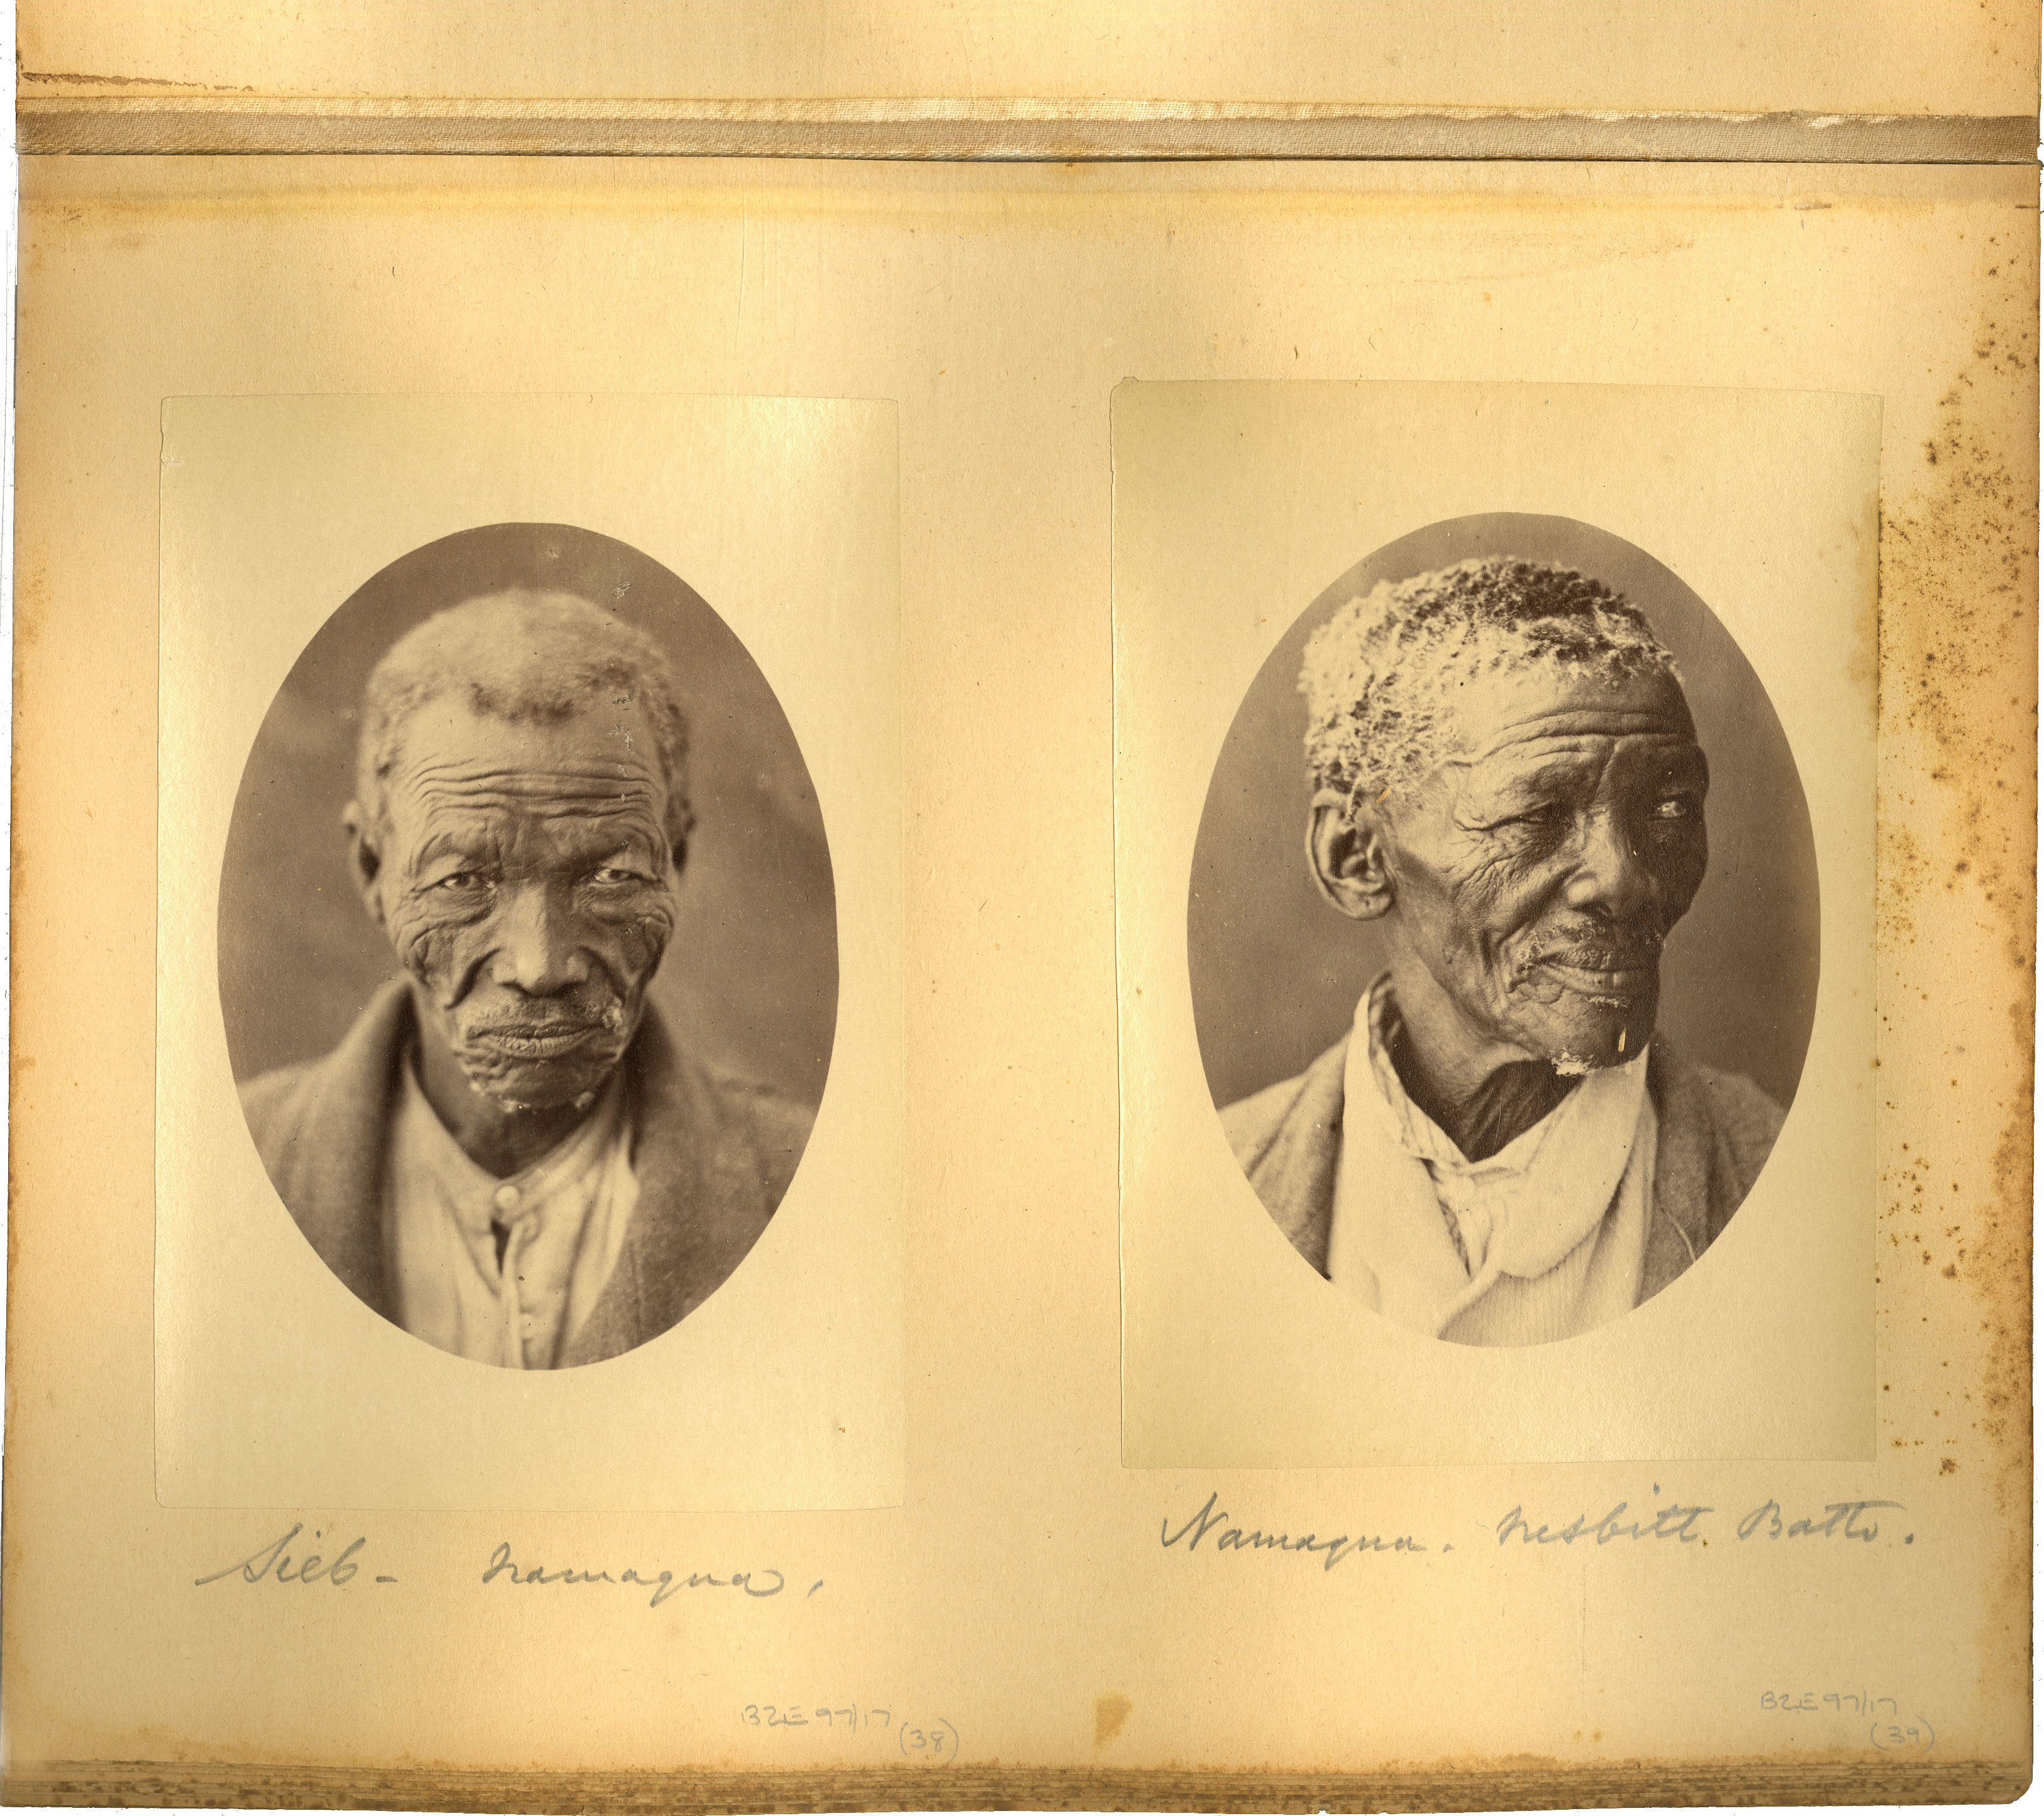 Sieb - Namaqua.
Namaqua. Nesbitt. Batts.
B2E 97/17
(38)
B2E 97/17
(39)